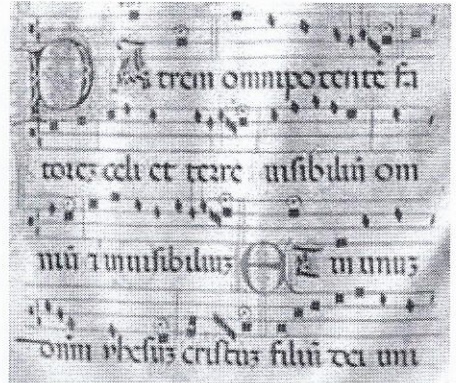 PAtrem omnipotentē fa
torez celi et terre uisibiliū om
niū ⁊ inuisibiliuz ET in unuz
donim yhesuz cristuz filiū dei uni